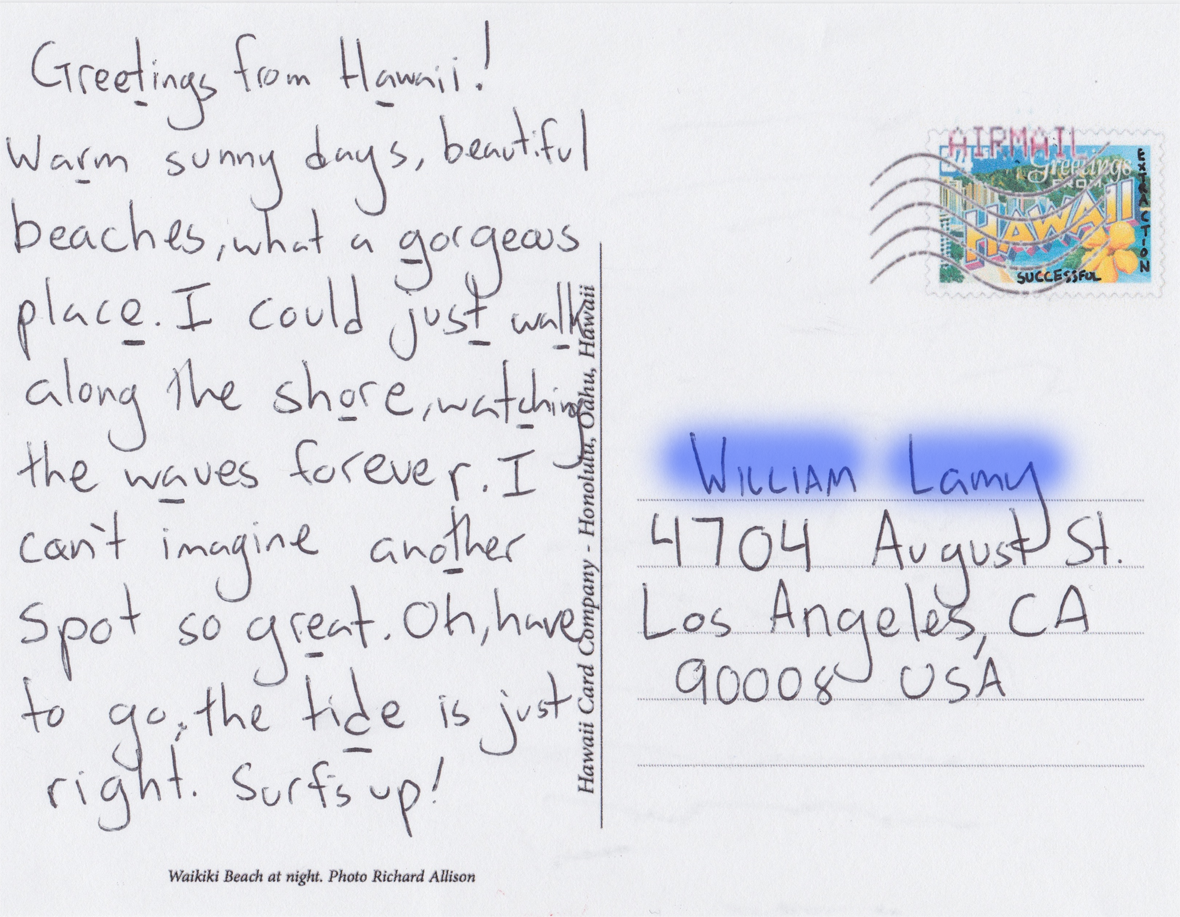 Greetings from Hawaii!
Warm sunny days, beautiful
beaches, what a gorgeous
place. I could just walk
along the shore, watching
the waves forever. I
can't imagine another
spot so great. Oh, have
to go, the tide is just
right. Surf's up!
Waikiki Beach at night. Photo Richard Allison
Hawaii Card Company - Honolulu, Oahu, Hawaii
AIRMAIL
Greetings
FROM
HAWAII
SUCCESSFUL
EXTRACTION
WILLIAM Lamy
4704 August St.
Los Angeles, CA
90008 USA